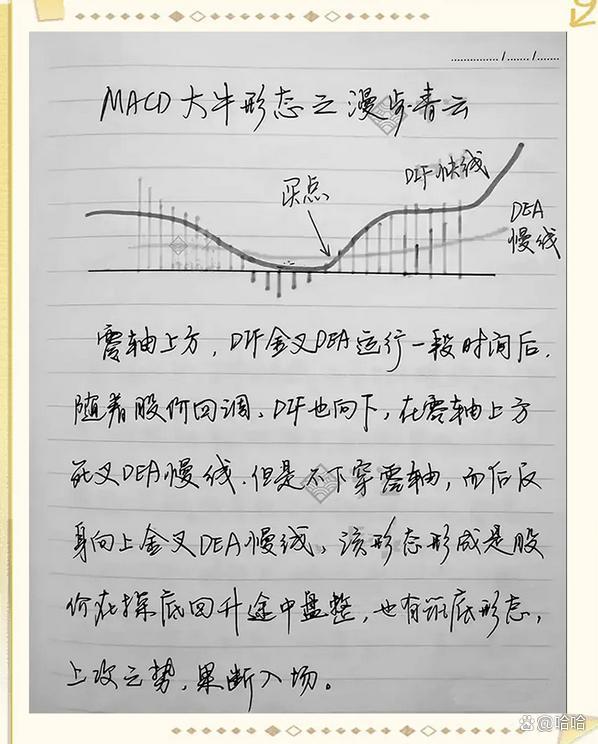 MACD大牛形态之漫步青云
买点
DIF快线
DEA
慢线
零轴上方，DIF金叉DEA运行一段时间后，
随着股价回调、DIF也向下，在零轴上方
死叉DEA慢线.但是不下穿零轴，而后反
身向上金叉DEA慢线，该形态形成是股
价在探底回升途中盘整，也有筑底形态，
上攻之势，果断入场。
哈哈